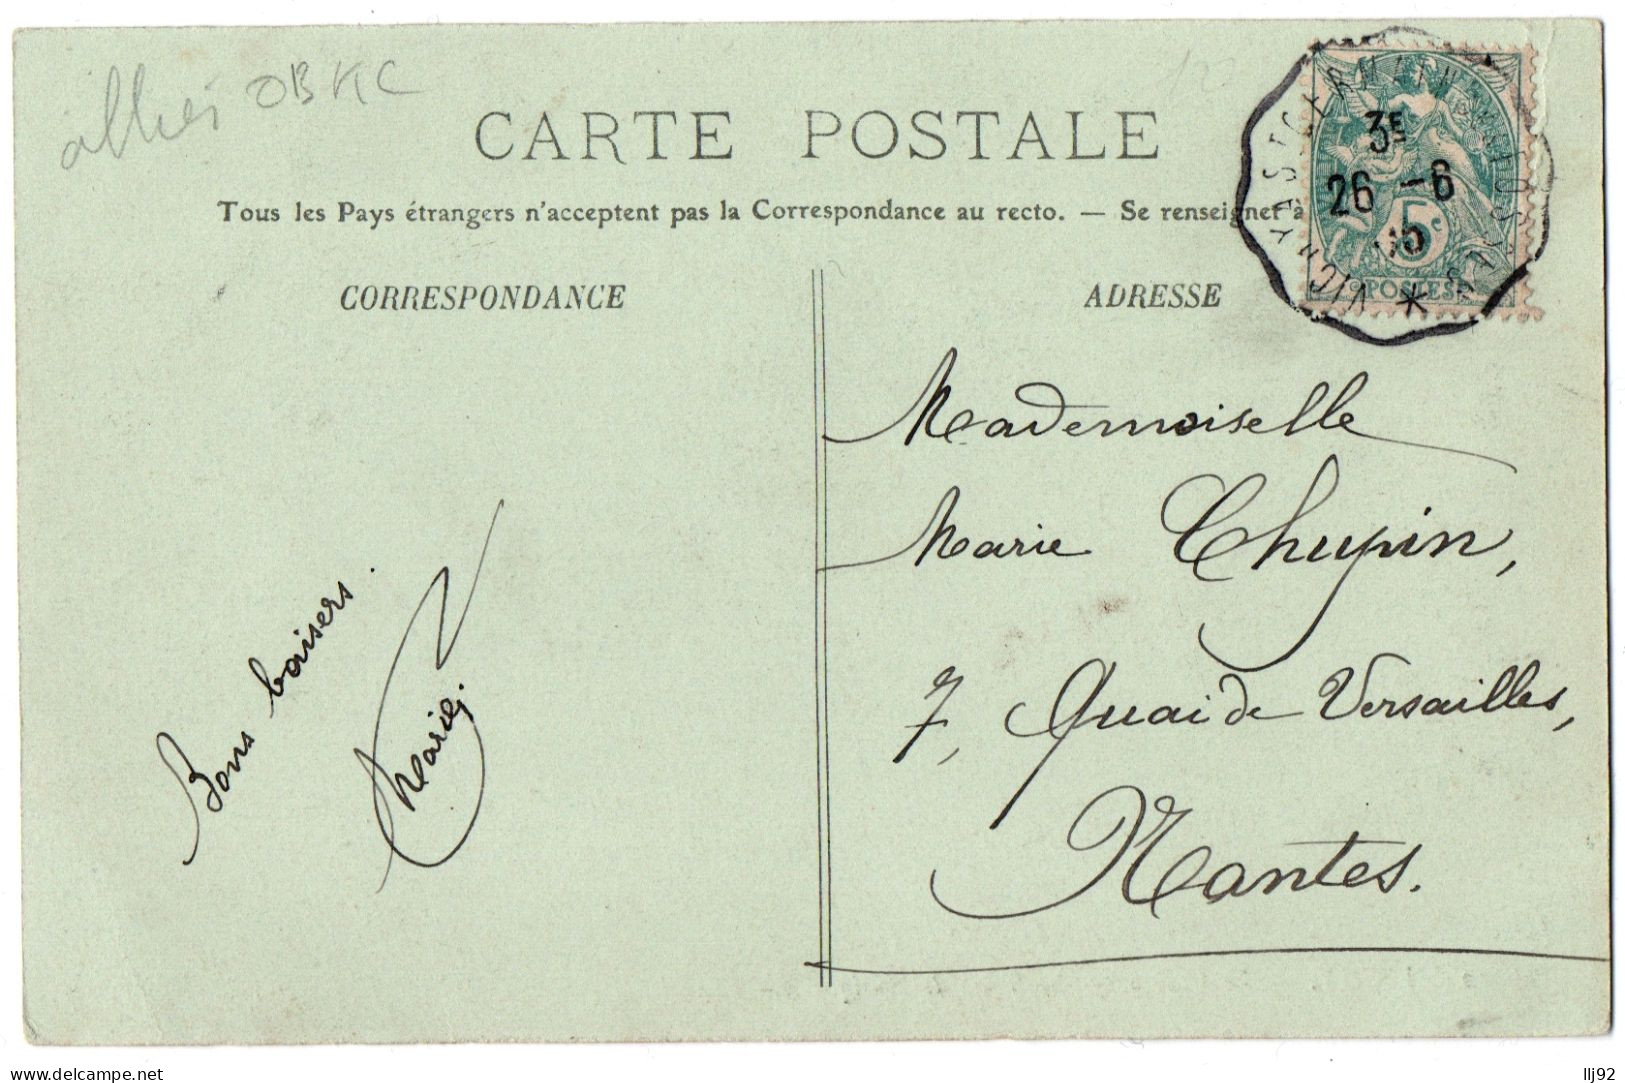 OBKC
CARTE POSTALE
Tous les Pays étrangers n'acceptent pas la Correspondance au recto. — Se renseigner à
CORRESPONDANCE
ADRESSE
VICHY A ST GERMAIN DES FOSSES
3E
26 -6
05
5c
POSTES
Mademoiselle
Marie Chupin,
7, Quai de Versailles,
Nantes.
Bons baisers.
Marie
www.delcampe.net
llj92